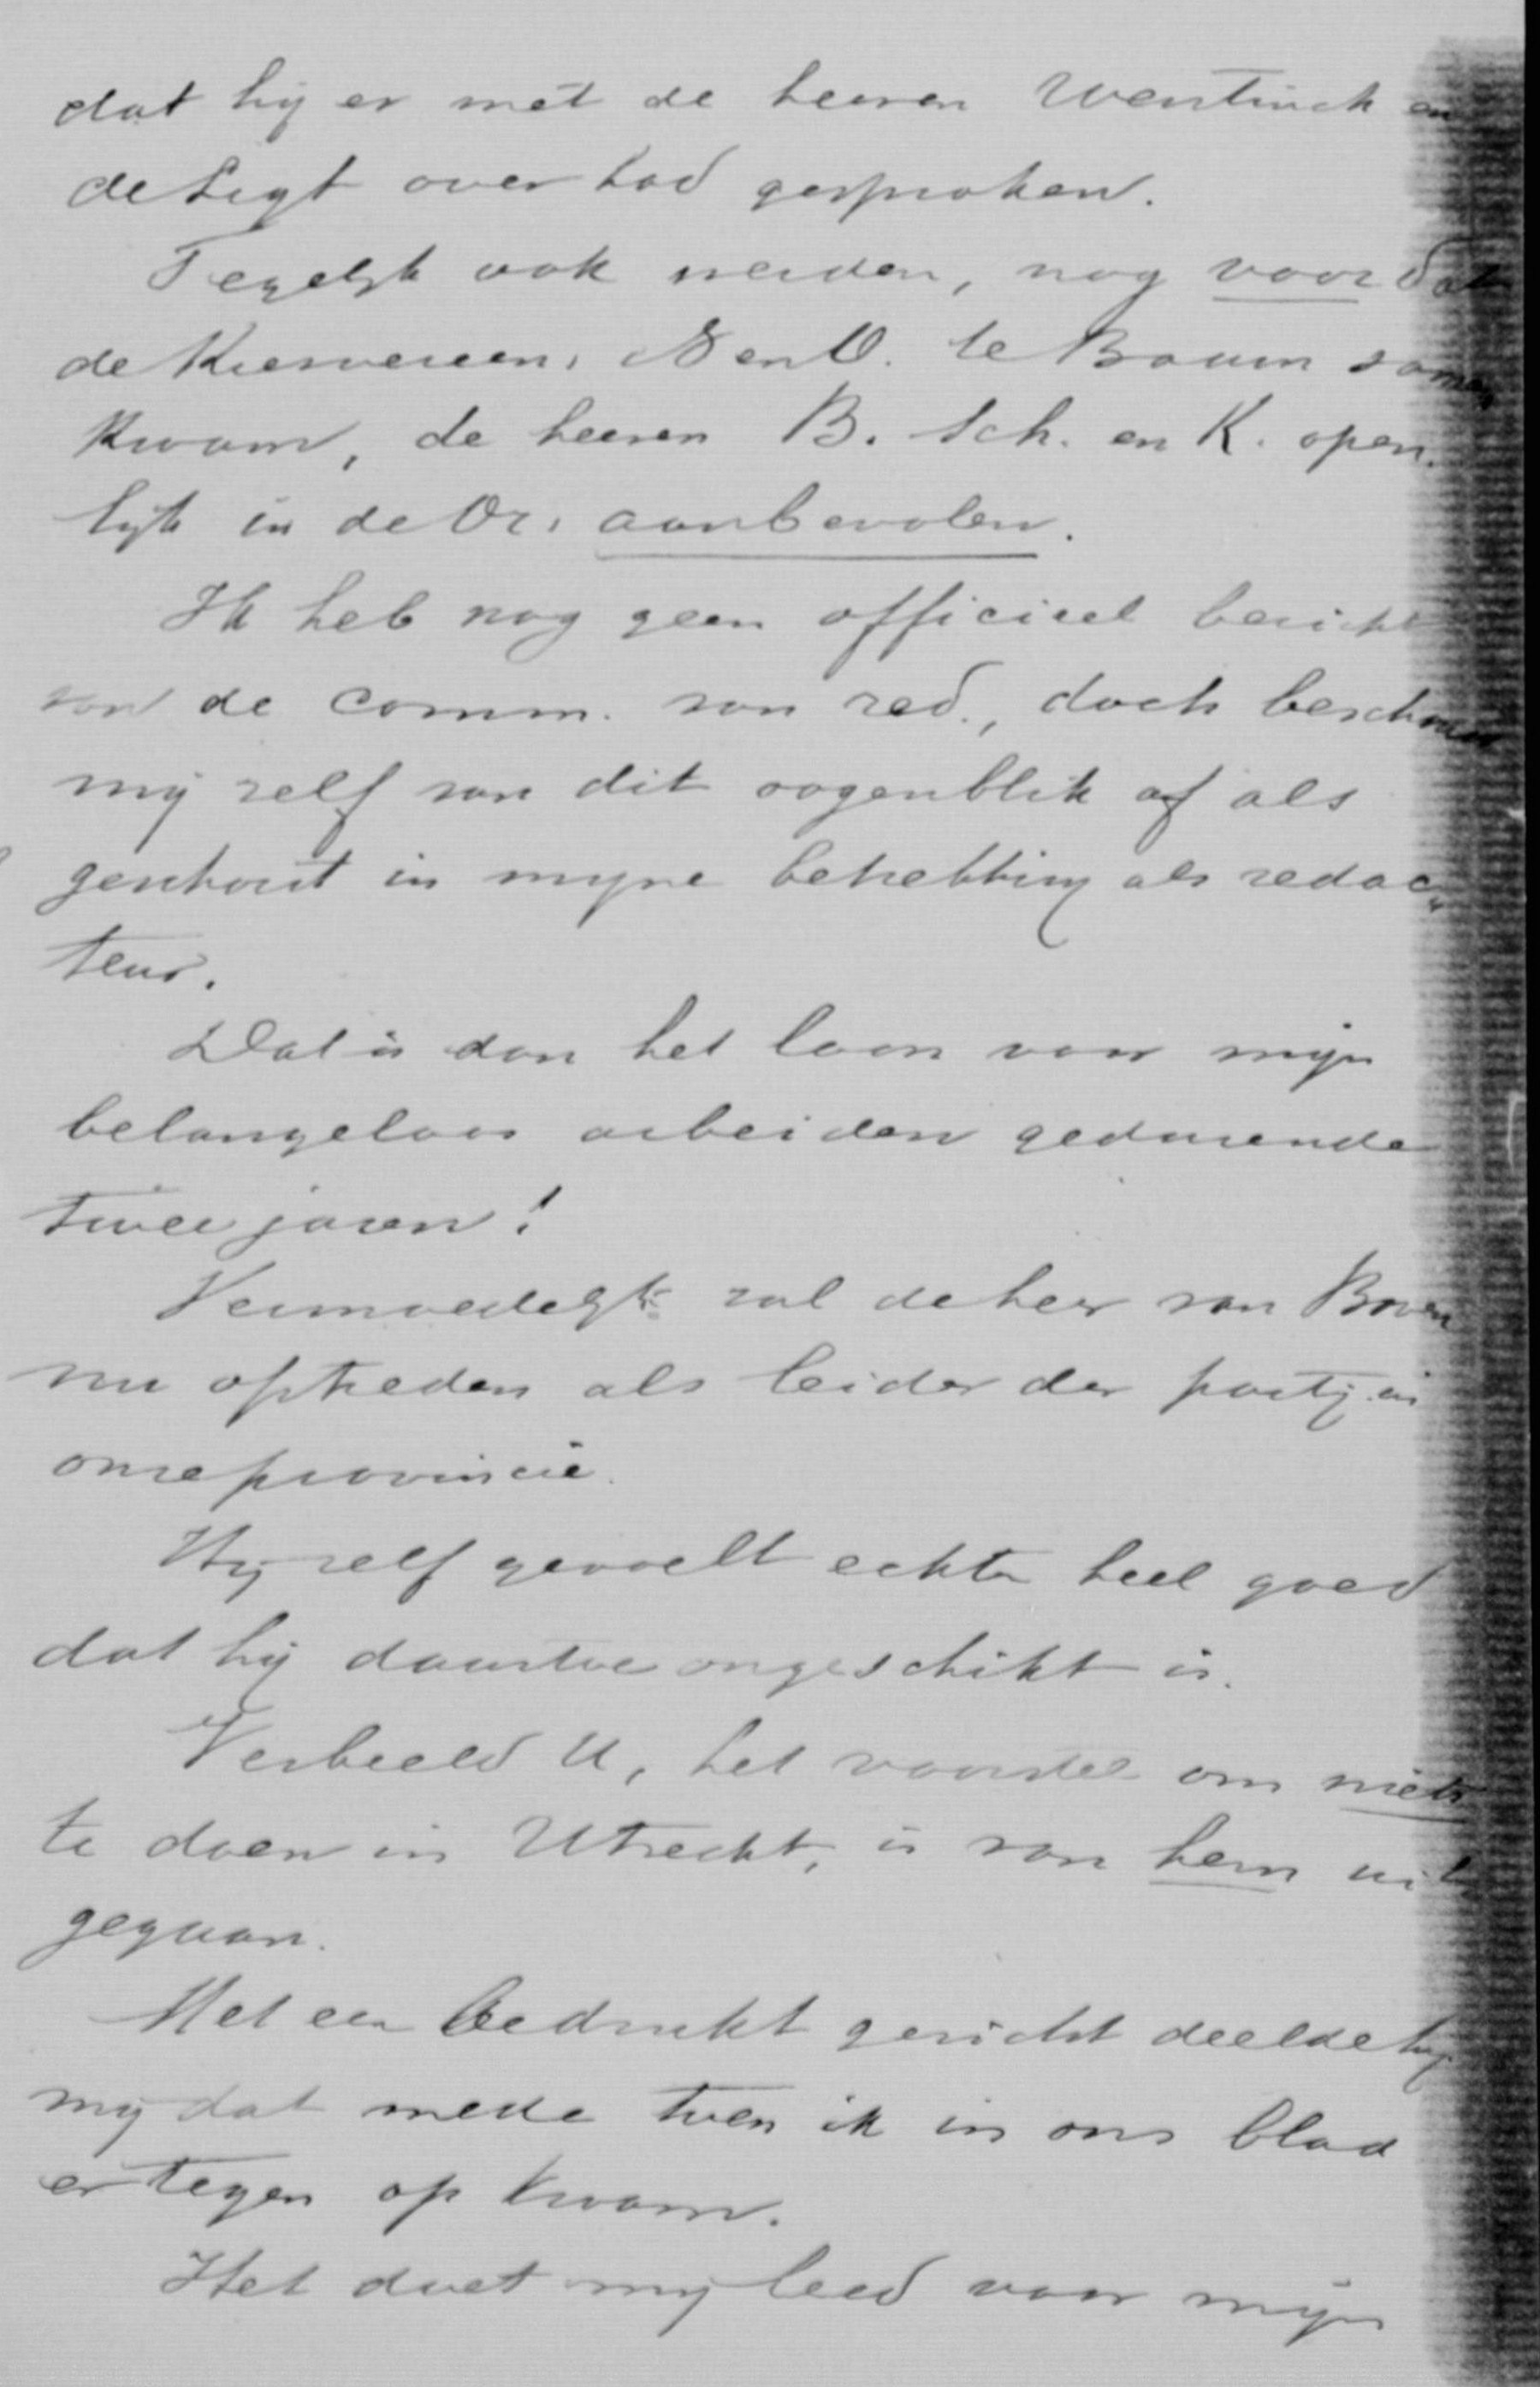 dat hij er met de heeren Wentinck en
de Ligt over had gesproken.
Tegelijk ook werden, nog voor dat
de Kiesvereen. N en O. te Baarn samen
kwam, de heeren B. Sch. en K. open-
lijk in de Or. aanbevolen.
Ik heb nog geen officieel bericht
van de comm. van red., doch beschouw
mij zelf van dit oogenblik af als
geschorst in mijne betrekking als redac-
teur.
Dat is dan het loon voor mijn
belangeloos arbeiden gedurende
twee jaren!
Vermoedelijk zal de heer van Boven
nu optreden als leider der partij in
onze provincie.
Hij zelf gevoelt echter heel goed
dat hij daartoe ongeschikt is.
Verbeeld U, het voorstel om niets
te doen in Utrecht, is van hem uit
gegaan.
Met een bedrukt gezicht deelde hij
mij dat mede toen ik in ons blad
er tegen op kwam.
Het doet mij leed voor mijn